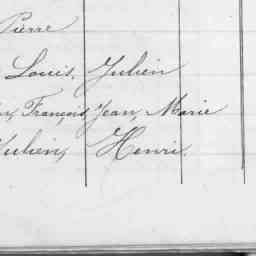 Pierre
Louis, Julien
François, Jean, Marie
Julien, Henri.